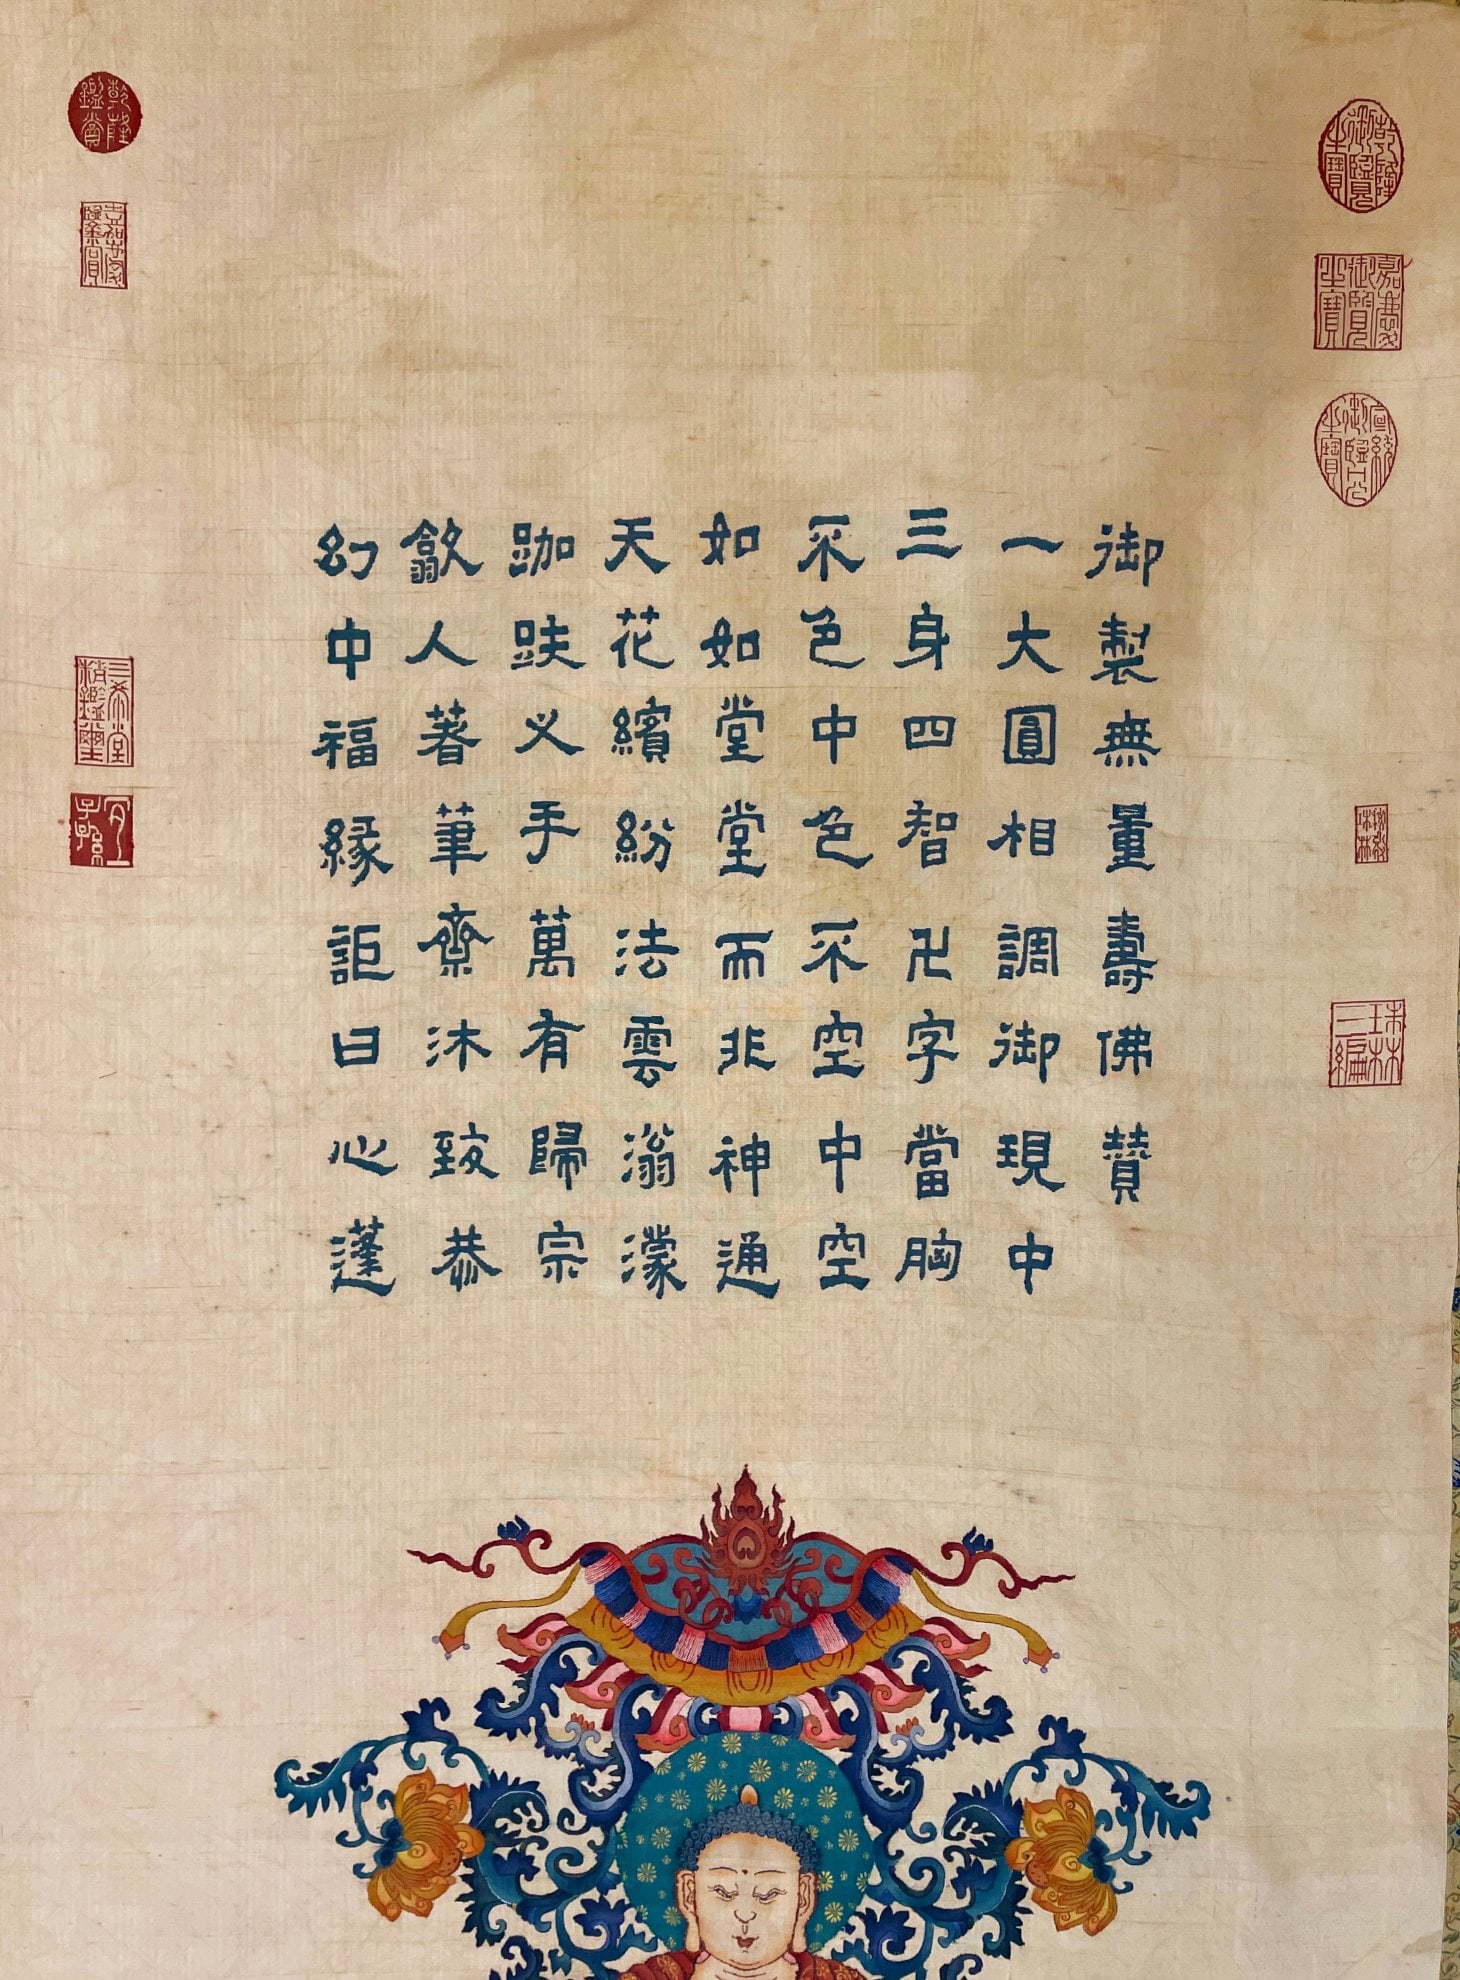 乾隆御覽之寶
嘉慶御覽之寶
宣統御覽之寶
秘殿珠林
御製無量壽佛贊
一大圓相調御現中
三身四智卍字當胸
不色中色不空中空
如如堂堂而非神通
天花繽紛法雲滃濛
跏趺叉手萬有歸宗
歙人著筆齋沐致恭
幻中福緣詎曰心蓬
乾隆鑑賞
嘉慶鑑賞
三希堂精鑑璽
宜子孫